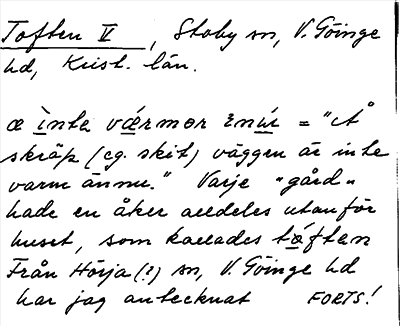 Toften V, Stoby sn, V. Göinge
hd, Krist. län.
æ ìnte vǽrmər ɛníu = "Å
skräp (eg. skit) väggen är inte
varm ännu." Varje "gård"
hade en åker alldeles utanför
huset, som kallades tǻften
Från Hörja (?) sn, V. Göinge hd
har jag antecknat FORTS!